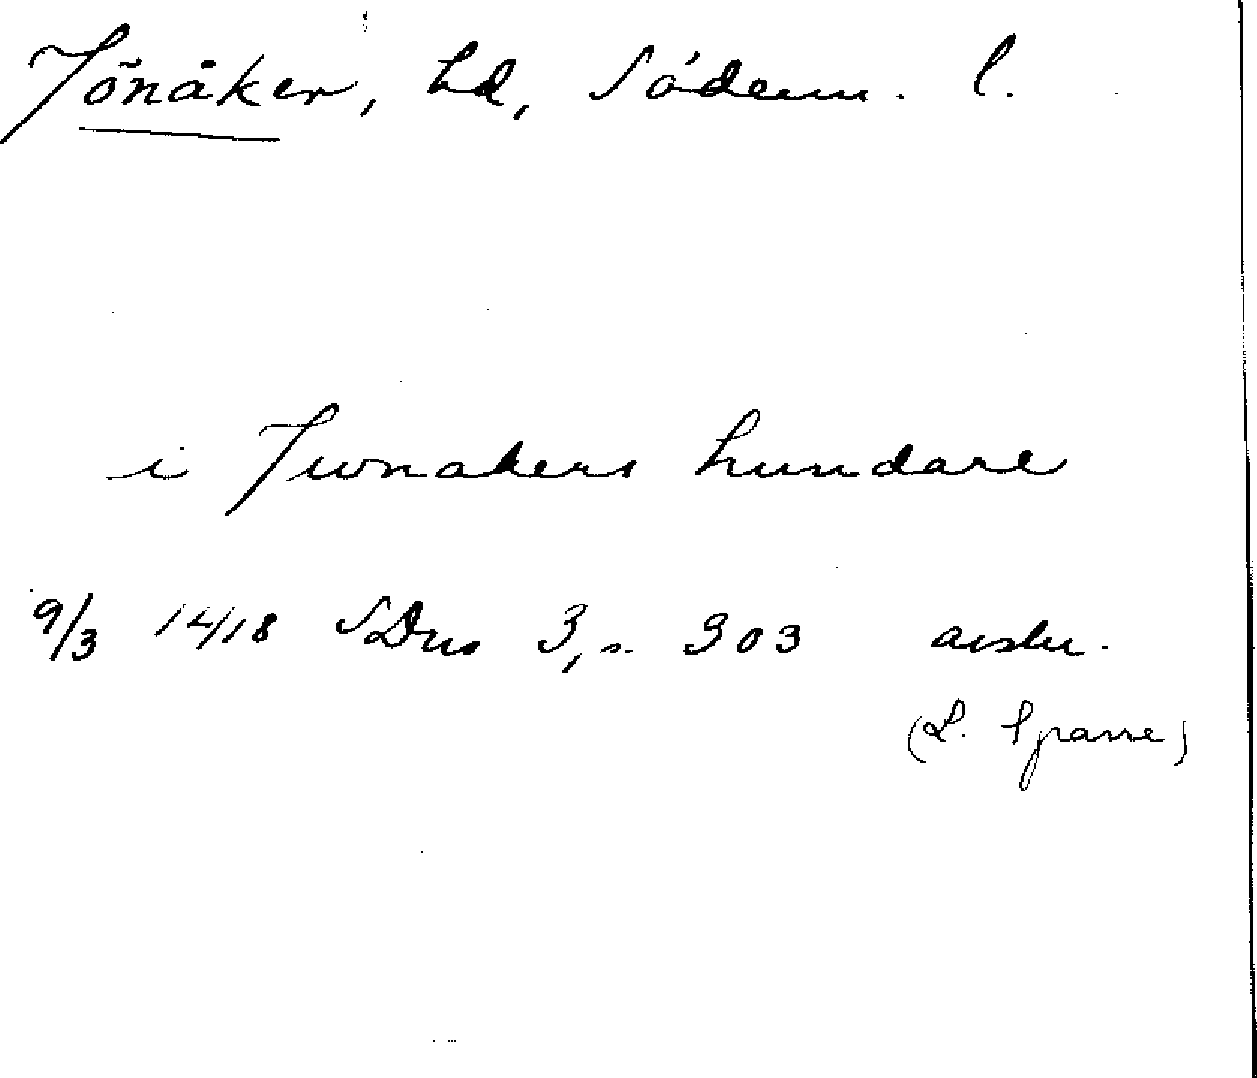 Jönåker, hd, Söderm. l.
i Jwnakers hundare
9/3 1418 SDns 3, s. 303 avskr.
(L. Sparre)